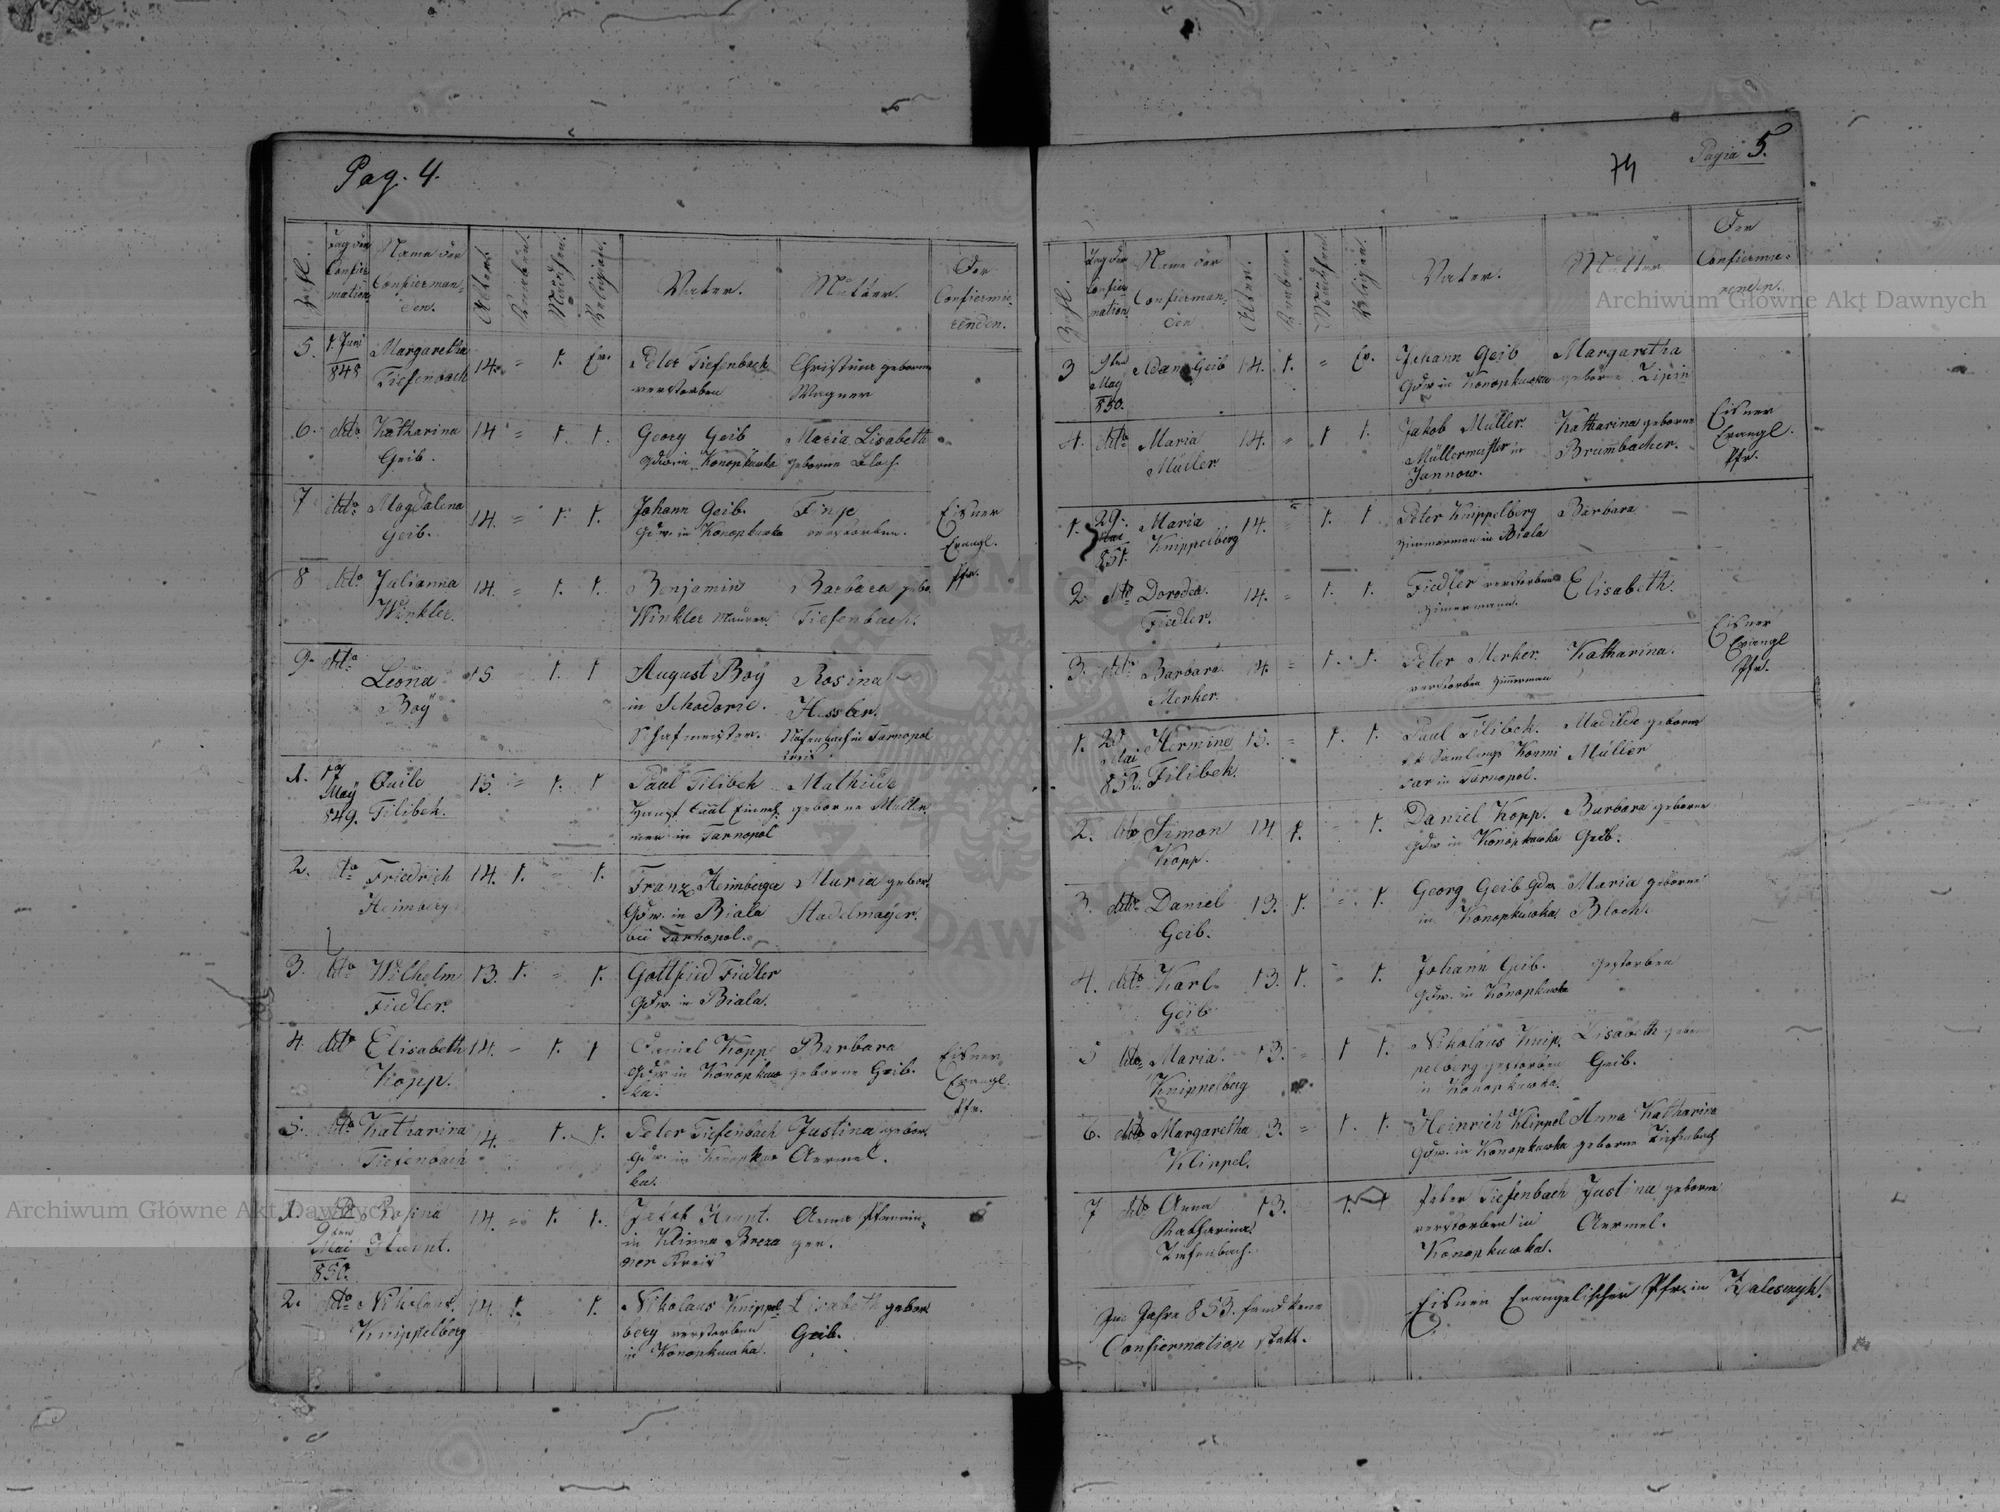 Pag. 4.
Zahl.
Tag der Confirmation
Name der Confirmanden.
Alter.
Knaben.
Mädchen.
Religion.
Vater.
Mutter.
Der Confirmirenden.
5. 1. Juni Margaretha 14. = 1. Ev. Peter Tiefenbach Christina geborne
848 Tiefenbach verstorben Wagner
6. dtto Katharina 14 = 1. 1. Georg Geib Maria Lisabeth
Geib. Gdw. in Konopkuwka geborne Bloch.
7 dtto Magdalena 14. = 1. 1. Johann Geib.
Geib. Gdw. in Konopkuwka verstorben.
Eisner
Evangl.
Pfr.
8 dtto Julianna 14. = 1. 1. Benjamin Barbara gebo.
Winkler. Winkler Maurer. Tiefenbach.
9. dtto Leona 15 1. 1 August Boÿ Rosina
Boÿ in Schodorie. Hessler.
Schafmeister. in Tarnopol
Kreis
1. 17 15. = 1. 1 Paul Filibek Mathilde
Maÿ Filibek. geborne Müller
849. in Tarnopol
2. dto Friedrich 14. 1. = 1. Franz Heimberger Maria gebor.
Heimberger Gdw. in Biala Stadelmaÿer.
bei Tarnopol.
3. dtto Wilhelm 13. 1. = 1. Gottfried Fiedler
Fiedler. Gdw. in Biala.
4. dtto Elisabeth 14. – 1. 1 Daniel Kopp Barbara
Kopp. Gdw. in Konopkuw geborne Geib.
ka.
Eisner
Evangl.
Pfr.
5. dtto Katharina 14. 1. 1. Peter Tiefenbach Justina gebor.
Tiefenbach Gdw. in Konopkuw Aermel.
ka.
1. Rosina 14. = 1. 1. Jakob Haupt. Anna
9ten Haupt. in
Mai
850.
2. dtto Nikolaus 14. 1. 1. Nikolaus Knippel Lisabeth gebor
Knippelberg berg verstorben Geib.
in Konopkuwka.
74
Pagia 5.
Zahl.
Tag der Confirmation
Name der Confirmanden
Alter.
Knaben.
Mädchen.
Religion.
Vater.
Mutter
Der Confirmirenden.
3 9ten Adam Geib 14. 1. = Ev. Johann Geib Margaretha
May Gdw in Konopkuwka geborne
850.
4. dtto Maria 14. = 1 1. Jakob Müller. Katharina geborne
Müller Müllermeister in Brumbacher.
Jannow.
Eisner
Evangl.
Pfr.
1. 29. Maria 14. = 1. 1 Peter Knippelberg Barbara
Mai Knippelberg Zimmerman in Biala
851.
2. dtto Dorodea 14. = 1. 1. Fiedler verstorben Elisabeth.
Fiedler. Zimermann.
3. dtto Barbara 14. = 1. 1. Peter Merker. Katharina.
Merker. verstorben Zimmerman
Eisner
Evangl
Pfr.
1. Hermine 15. = 1. 1. Paul Filibek. Madilde geborne
Mai Filibek. Müller
852. in Tarnopol.
2. dtto Simon 14 1. = 1. Daniel Kopp. Barbara geborne
Kopp. Gdw in Konopkuwka Geib.
3. dtto Daniel 13. 1. = 1. Georg Geib Gdw. Maria geborne
Geib. in Konopkuwka. Bloch.
4. dtto Karl 13. 1. = 1. Johann Geib. gestorben
Geib Gdw. in Konopkuwka
5 dtto Maria. 13. = 1 1. Nikolaus Knip Lisabeth gebor
Knippelberg pelberg gestorben Geib.
in Konopkuwka.
6. dtto Margaretha 13. = 1. 1. Heinrich Klippel Anna Katharina
Klippel. Gdw. in Konopkuwka geborne Tiefenbach
7 dtto Anna 13. 1. 1 Peter Tiefenbach Justina geborne
Katharina verstorben in Aermel.
Tiefenbach. Konopkuwka.
Im Jahre 853. fand kene Eisner Evangelischer Pfr. in Zalesczyk.
Confiermation statt.
Archiwum Główne Akt Dawnych
Archiwum Główne Akt Dawnych